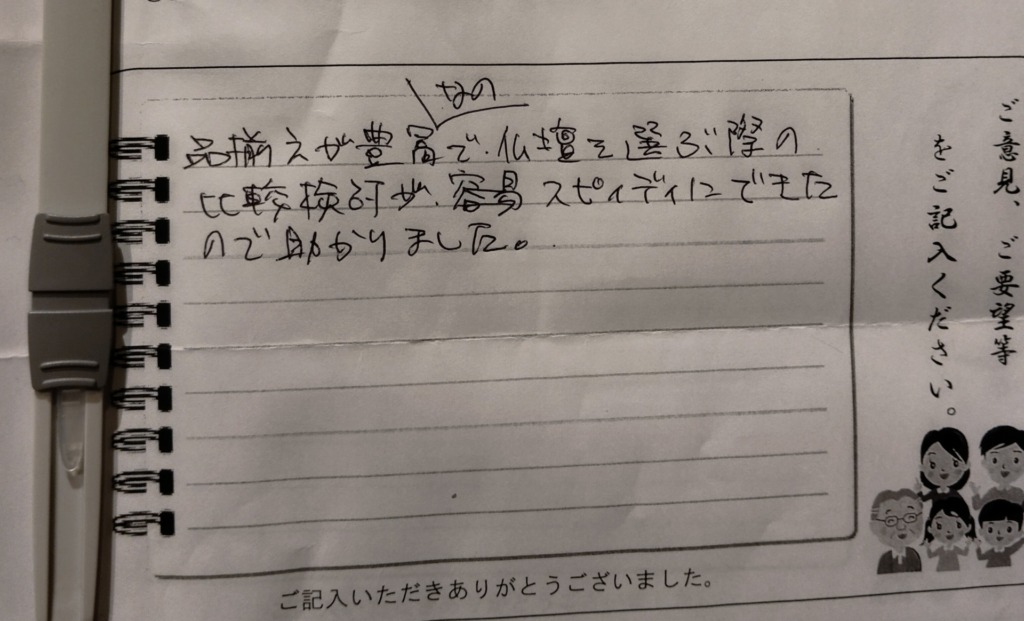 ご意見、ご要望等
をご記入ください。
なの
品揃えが豊富で、仏壇を選ぶ際の
比較検討が、容易スピィディにできた
ので助かりました。
ご記入いただきありがとうございました。